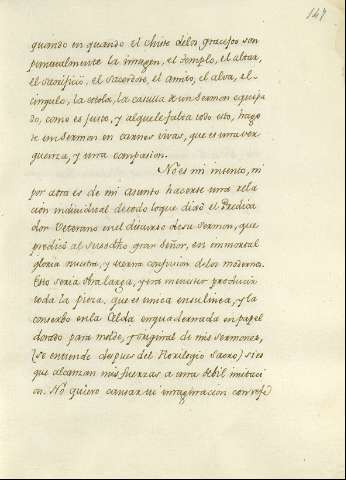 147
quando en quando el chiste delos gracejos son
puntualmente la imagen, el templo, el altar,
el sacrificio, el sacerdote, el amito, el alva, el
cingulo, la estola, la casulla de un Sermon equipa
do, como es justo, y al que le falta todo esto, hago
te un Sermon en carnes vivas, que es una ver
guenza, y una compasion.
No es mi intento, ni
por aora es de mi asunto hacerte una rela
cion individual de todo loque dixo el Predica
dor Veterano en el discurso desu sermon, que
predicó al susodicho gran Señor, en immortal
gloria nuestra, y eterna confusion delos modernos.
Esto seria obra larga, y era menester producir
toda la pieza, que es unica en su linea, y la
conserbo en la Celda enquadernada en papel
dorado para molde, y original de mis sermones,
(se entiende despues del Florilegio Sacro) si es
que alcanzan mis fuerzas a una debil imitaci
on. No quiero cansar tu imaginacion con refe